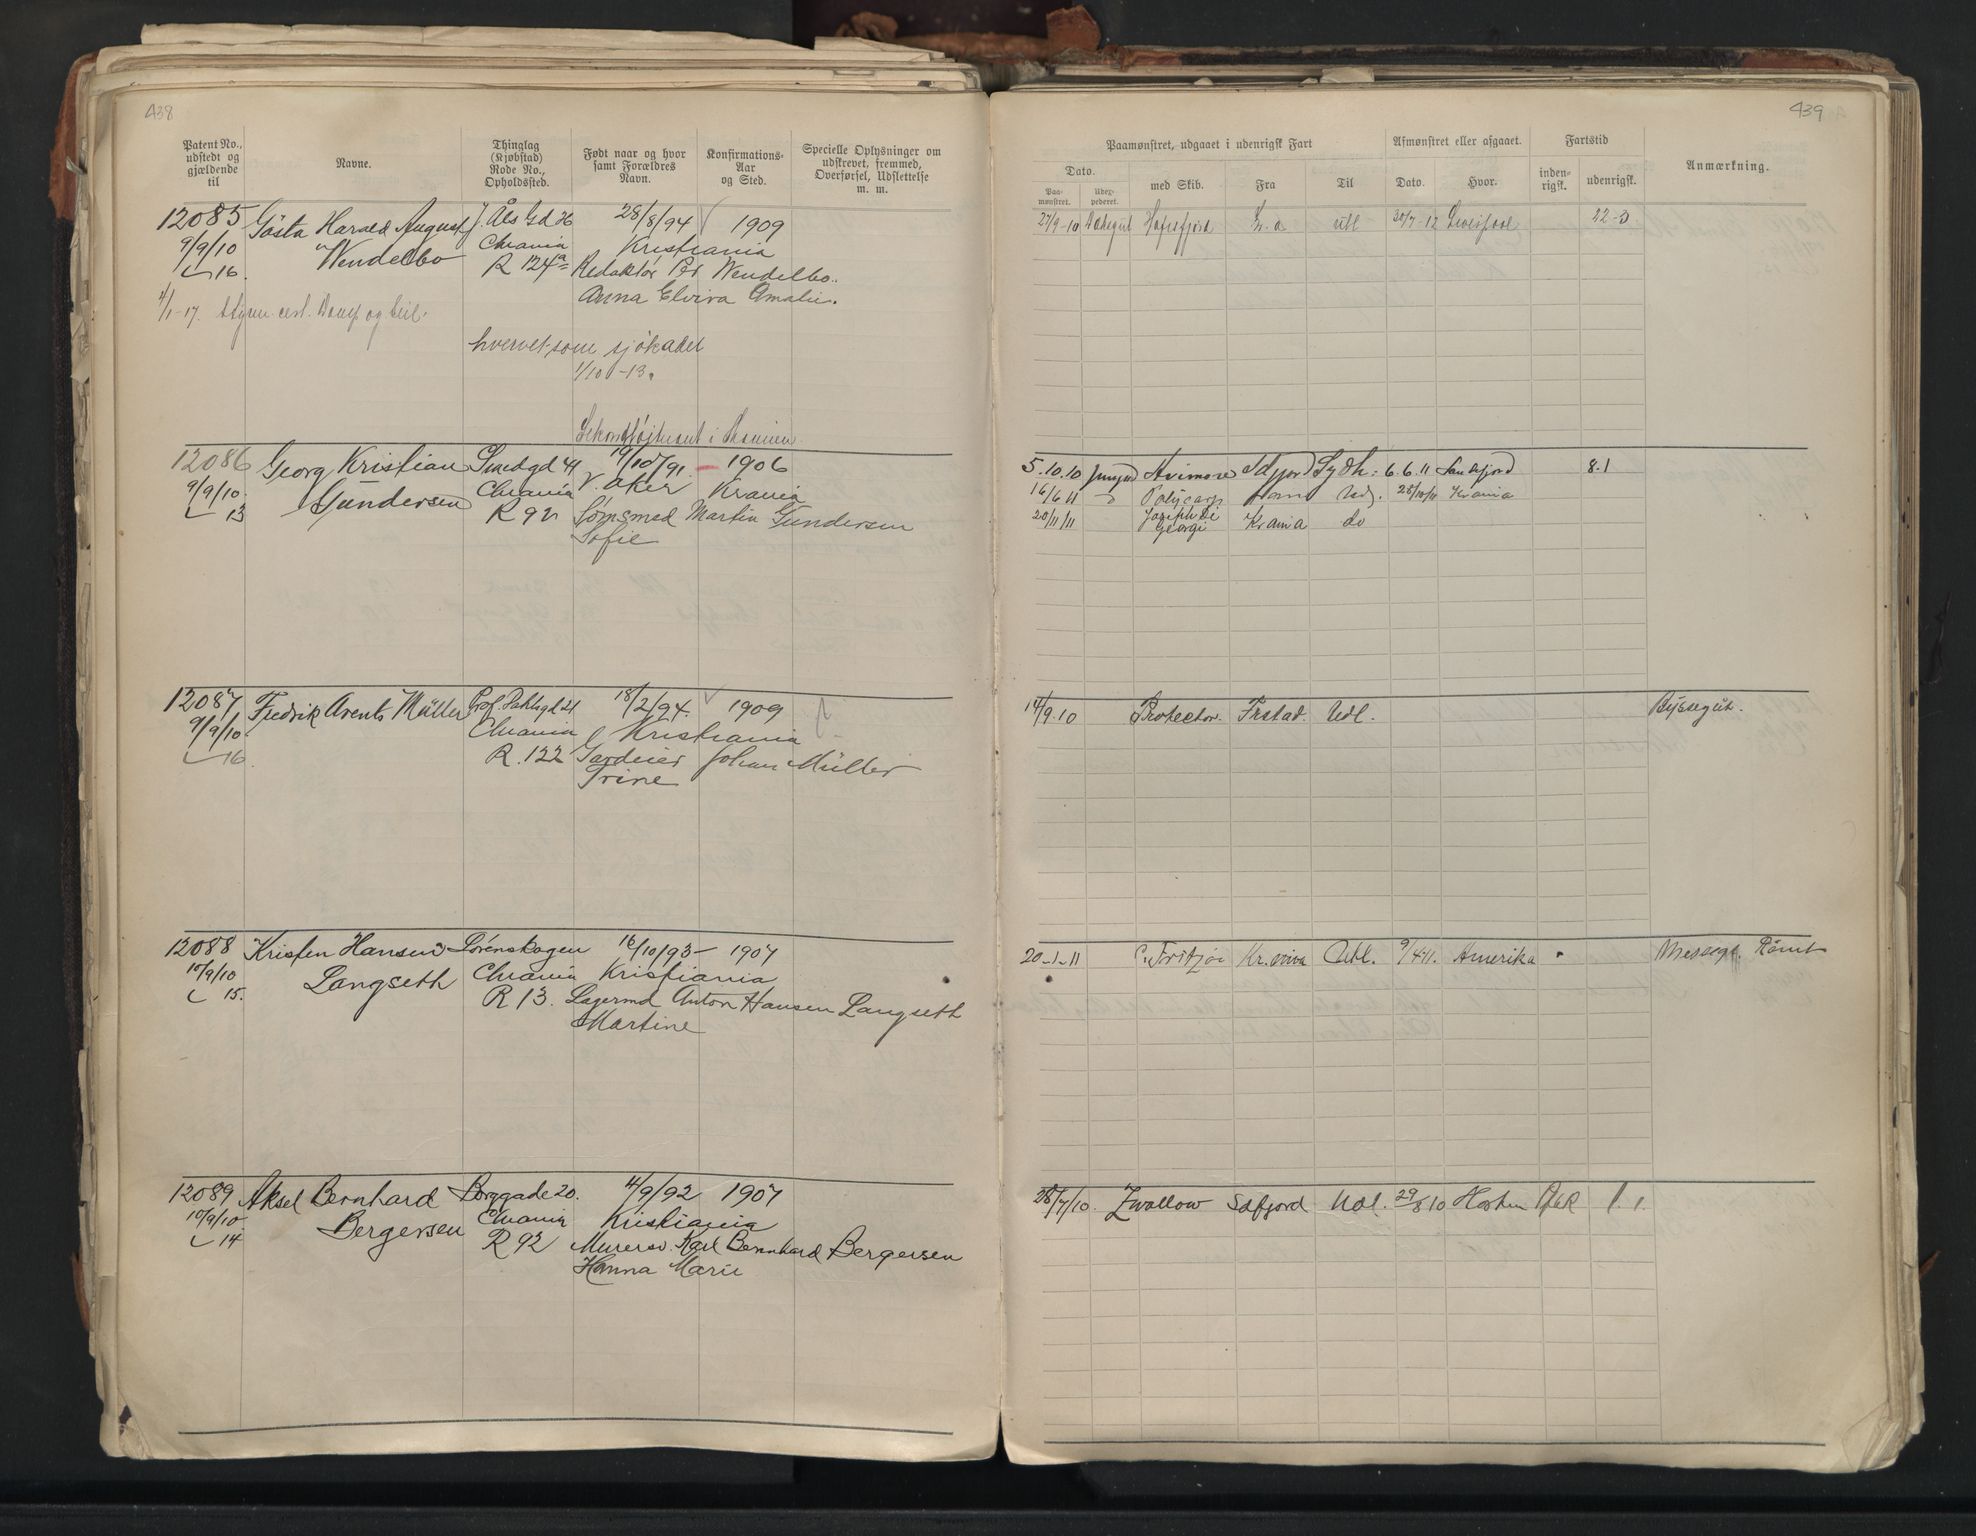 438
Patent No., udstedt og gjældende til
Navne.
Thinglag (Kjøbstad) Rode No., Opholdssted.
Født naar og hvor samt Forældres Navn.
Konfirmations-Aar og Sted.
Specielle Oplysninger om udskrevet, fremmed, Overførsel, Udslettelse m. m.
12085 Gösta Harald August J. Åls Gd 26 28/8/94 1909
9/9/10 Wendelbo Chrania Kristiania
16. R 124a Redaktör Per Wendelbo..
Anna Elvira Amalie.
4/1-17. Styrm. cert. Damp og Seil.
hvervet som sjökadet
1/10-13.
Sekondløjtnant i Marinen.
12086 Georg Kristian Smedgd 49 19/10/91 1906
9/9/10. Gundersen Chrania V. Aker Krania
13 R 92 Martin Gundersen
Sofie
12087 Fredrik Arents Müller Prof. Dahlsgd 21 18/2/94. 1909
9/9/10 Chrania Kristiania
16. R. 122 Johan Müller
Trine
12088 Kristen Hansen Lörenskogen 16/10/93 – 1907
10/9/10 Langseth Chrania Kristiania
15. R 13. Lagermd Anton Hansen Langseth
Martine
12089 Aksel Bernhard Borggade 20. 4/9/92 1907
10/9/10. Bergersen Chrania Kristiania
14 R 92 Murersv. Karl Bernhard Bergersen
Hanna Marie
439
Paamønstret, udgaaet i udenrigsk Fart
Afmønstret eller afgaaet.
Fartstid
Anmærkning.
Dato.
Paa-mønstret.
Udex-pederet.
med Skib.
Fra
Til
Dato.
Hvor.
inden-rigsk.
udenrigsk.
27/9-10 Dæksgut Hafrsfjord utl 30/7-12 Liverpool 22-3
5.10.10 Avimore Sydh: 6.6.11 Sandefjord 8.1
16/6 11 Polycarp Udl. 28/10/11 Krania
20/11/11 Josephine Georgi Krania do
14/9.10 Protector. Frstad. Udl. Byssegut.
20-1-11 Fritzjo Kr.ania Utl. 9/4-11. Amerika Messegt. Römt
28/7/10. Zwallow Udl. 29/8 10 1. 1.